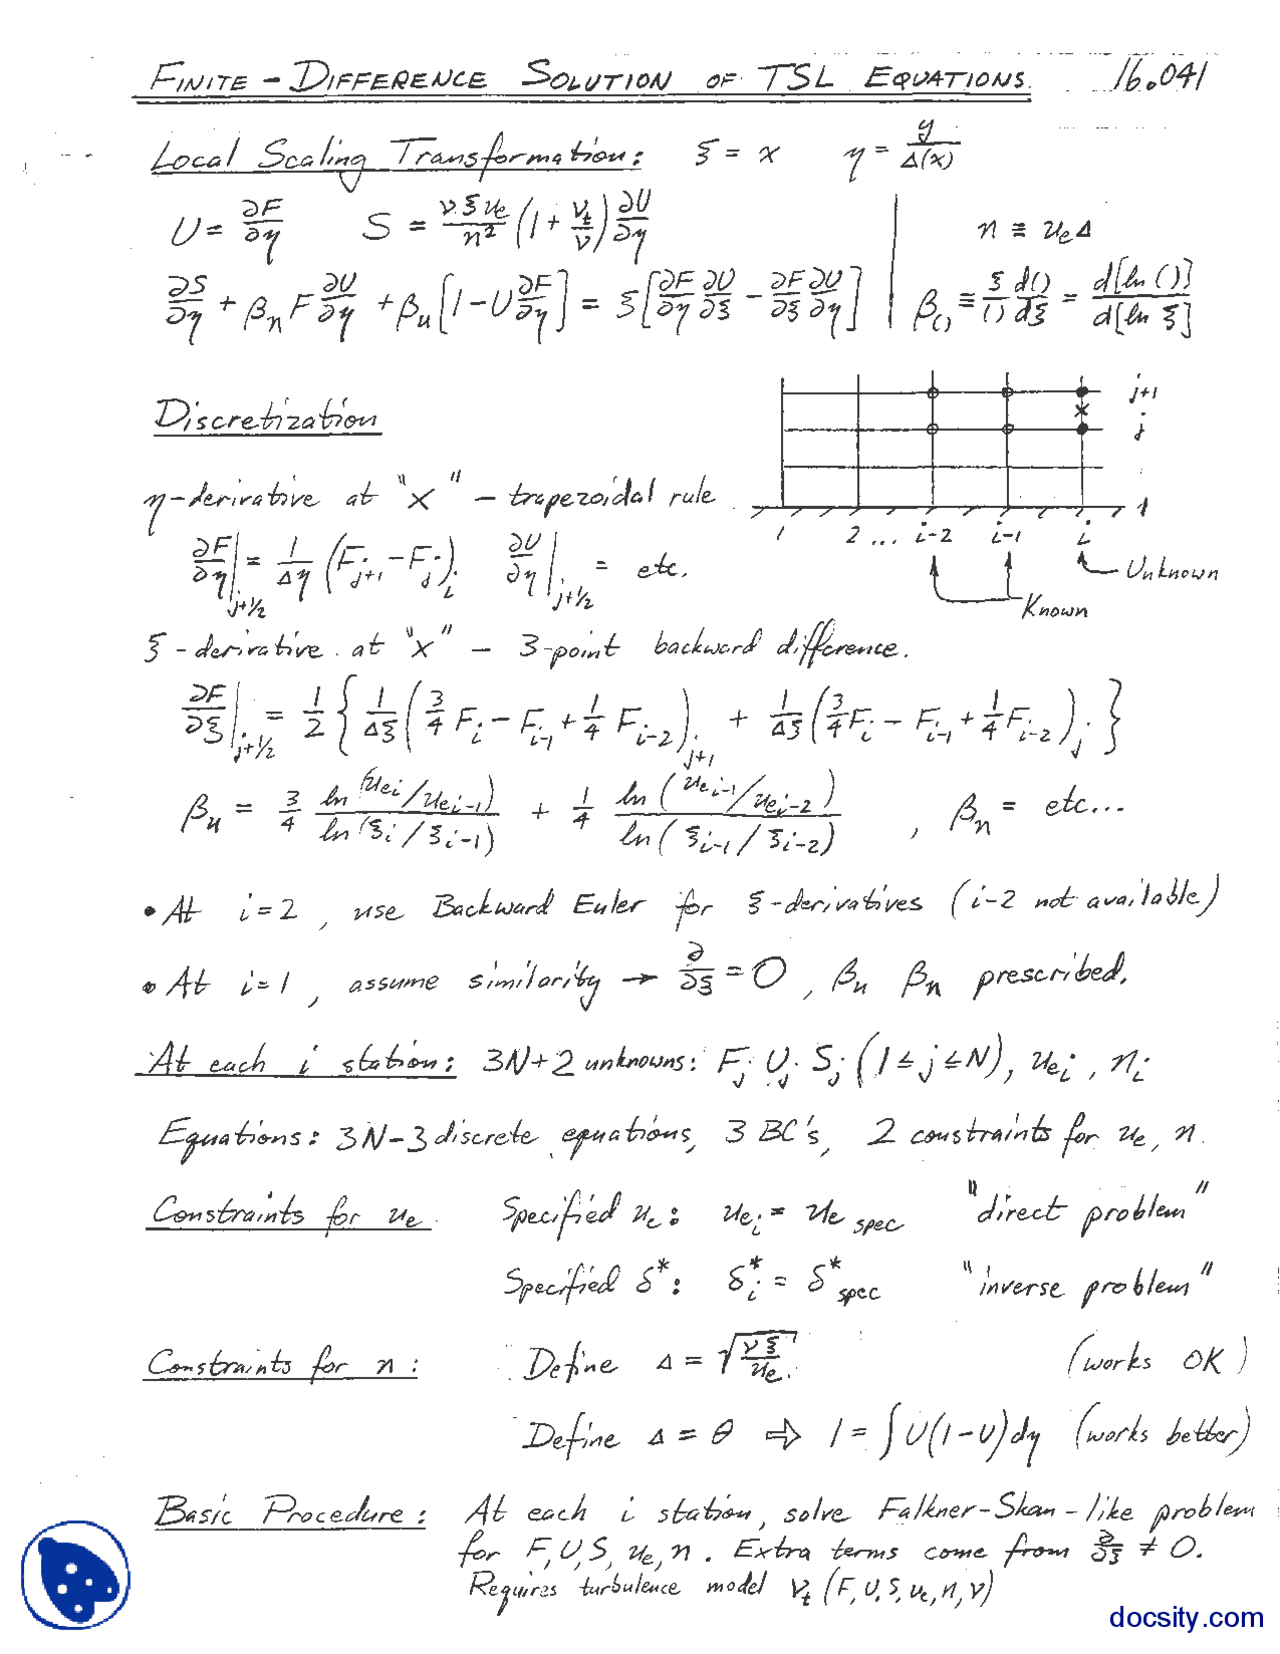 FINITE - DIFFERENCE SOLUTION OF TSL EQUATIONS 16.041
Local Scaling Transformation: ξ = x η = y/Δ(x)
U = ∂F/∂η S = νξu_e/n² (1 + ν_t/ν) ∂U/∂η n ≡ u_eΔ
∂S/∂η + β_n F ∂U/∂η + β_u [1 - U ∂F/∂η] = ξ [∂F/∂η ∂U/∂ξ - ∂F/∂ξ ∂U/∂η] β_() ≡ ξ/() d()/dξ = d[ln ()]/d[ln ξ]
j+1
Discretization
j
η-derivative at "x" - trapezoidal rule
1
1 2 ... i-2 i-1 i
∂F/∂η|_{j+1/2} = 1/Δη (F_{j+1} - F_j)_i ∂U/∂η|_{j+1/2} = etc.
Unknown
Known
ξ-derivative at "x" - 3-point backward difference.
∂F/∂ξ|_{j+1/2} = 1/2 { 1/Δξ (3/4 F_i - F_{i-1} + 1/4 F_{i-2})_{j+1} + 1/Δξ (3/4 F_i - F_{i-1} + 1/4 F_{i-2})_j }
β_u = 3/4 ln(u_{ei}/u_{ei-1})/ln(ξ_i/ξ_{i-1}) + 1/4 ln(u_{ei-1}/u_{ei-2})/ln(ξ_{i-1}/ξ_{i-2}) , β_n = etc...
• At i=2, use Backward Euler for ξ-derivatives (i-2 not available)
• At i=1, assume similarity → ∂/∂ξ = 0, β_u β_n prescribed.
At each i station: 3N+2 unknowns: F_j U_j S_j (1≤j≤N), u_{ei}, n_i
Equations: 3N-3 discrete equations, 3 BC's, 2 constraints for u_e, n.
Constraints for u_e Specified u_e: u_{ei} = u_{e spec} "direct problem"
Specified δ*: δ*_i = δ*_{spec} "inverse problem"
Constraints for n: Define Δ = √(νξ/u_e) (works OK)
Define Δ = θ ⇒ 1 = ∫U(1-U)dη (works better)
Basic Procedure: At each i station, solve Falkner-Skan-like problem
for F, U, S, u_e, n. Extra terms come from ∂/∂ξ ≠ 0.
Requires turbulence model ν_t (F, U, S, u_e, n, ν)
docsity.com